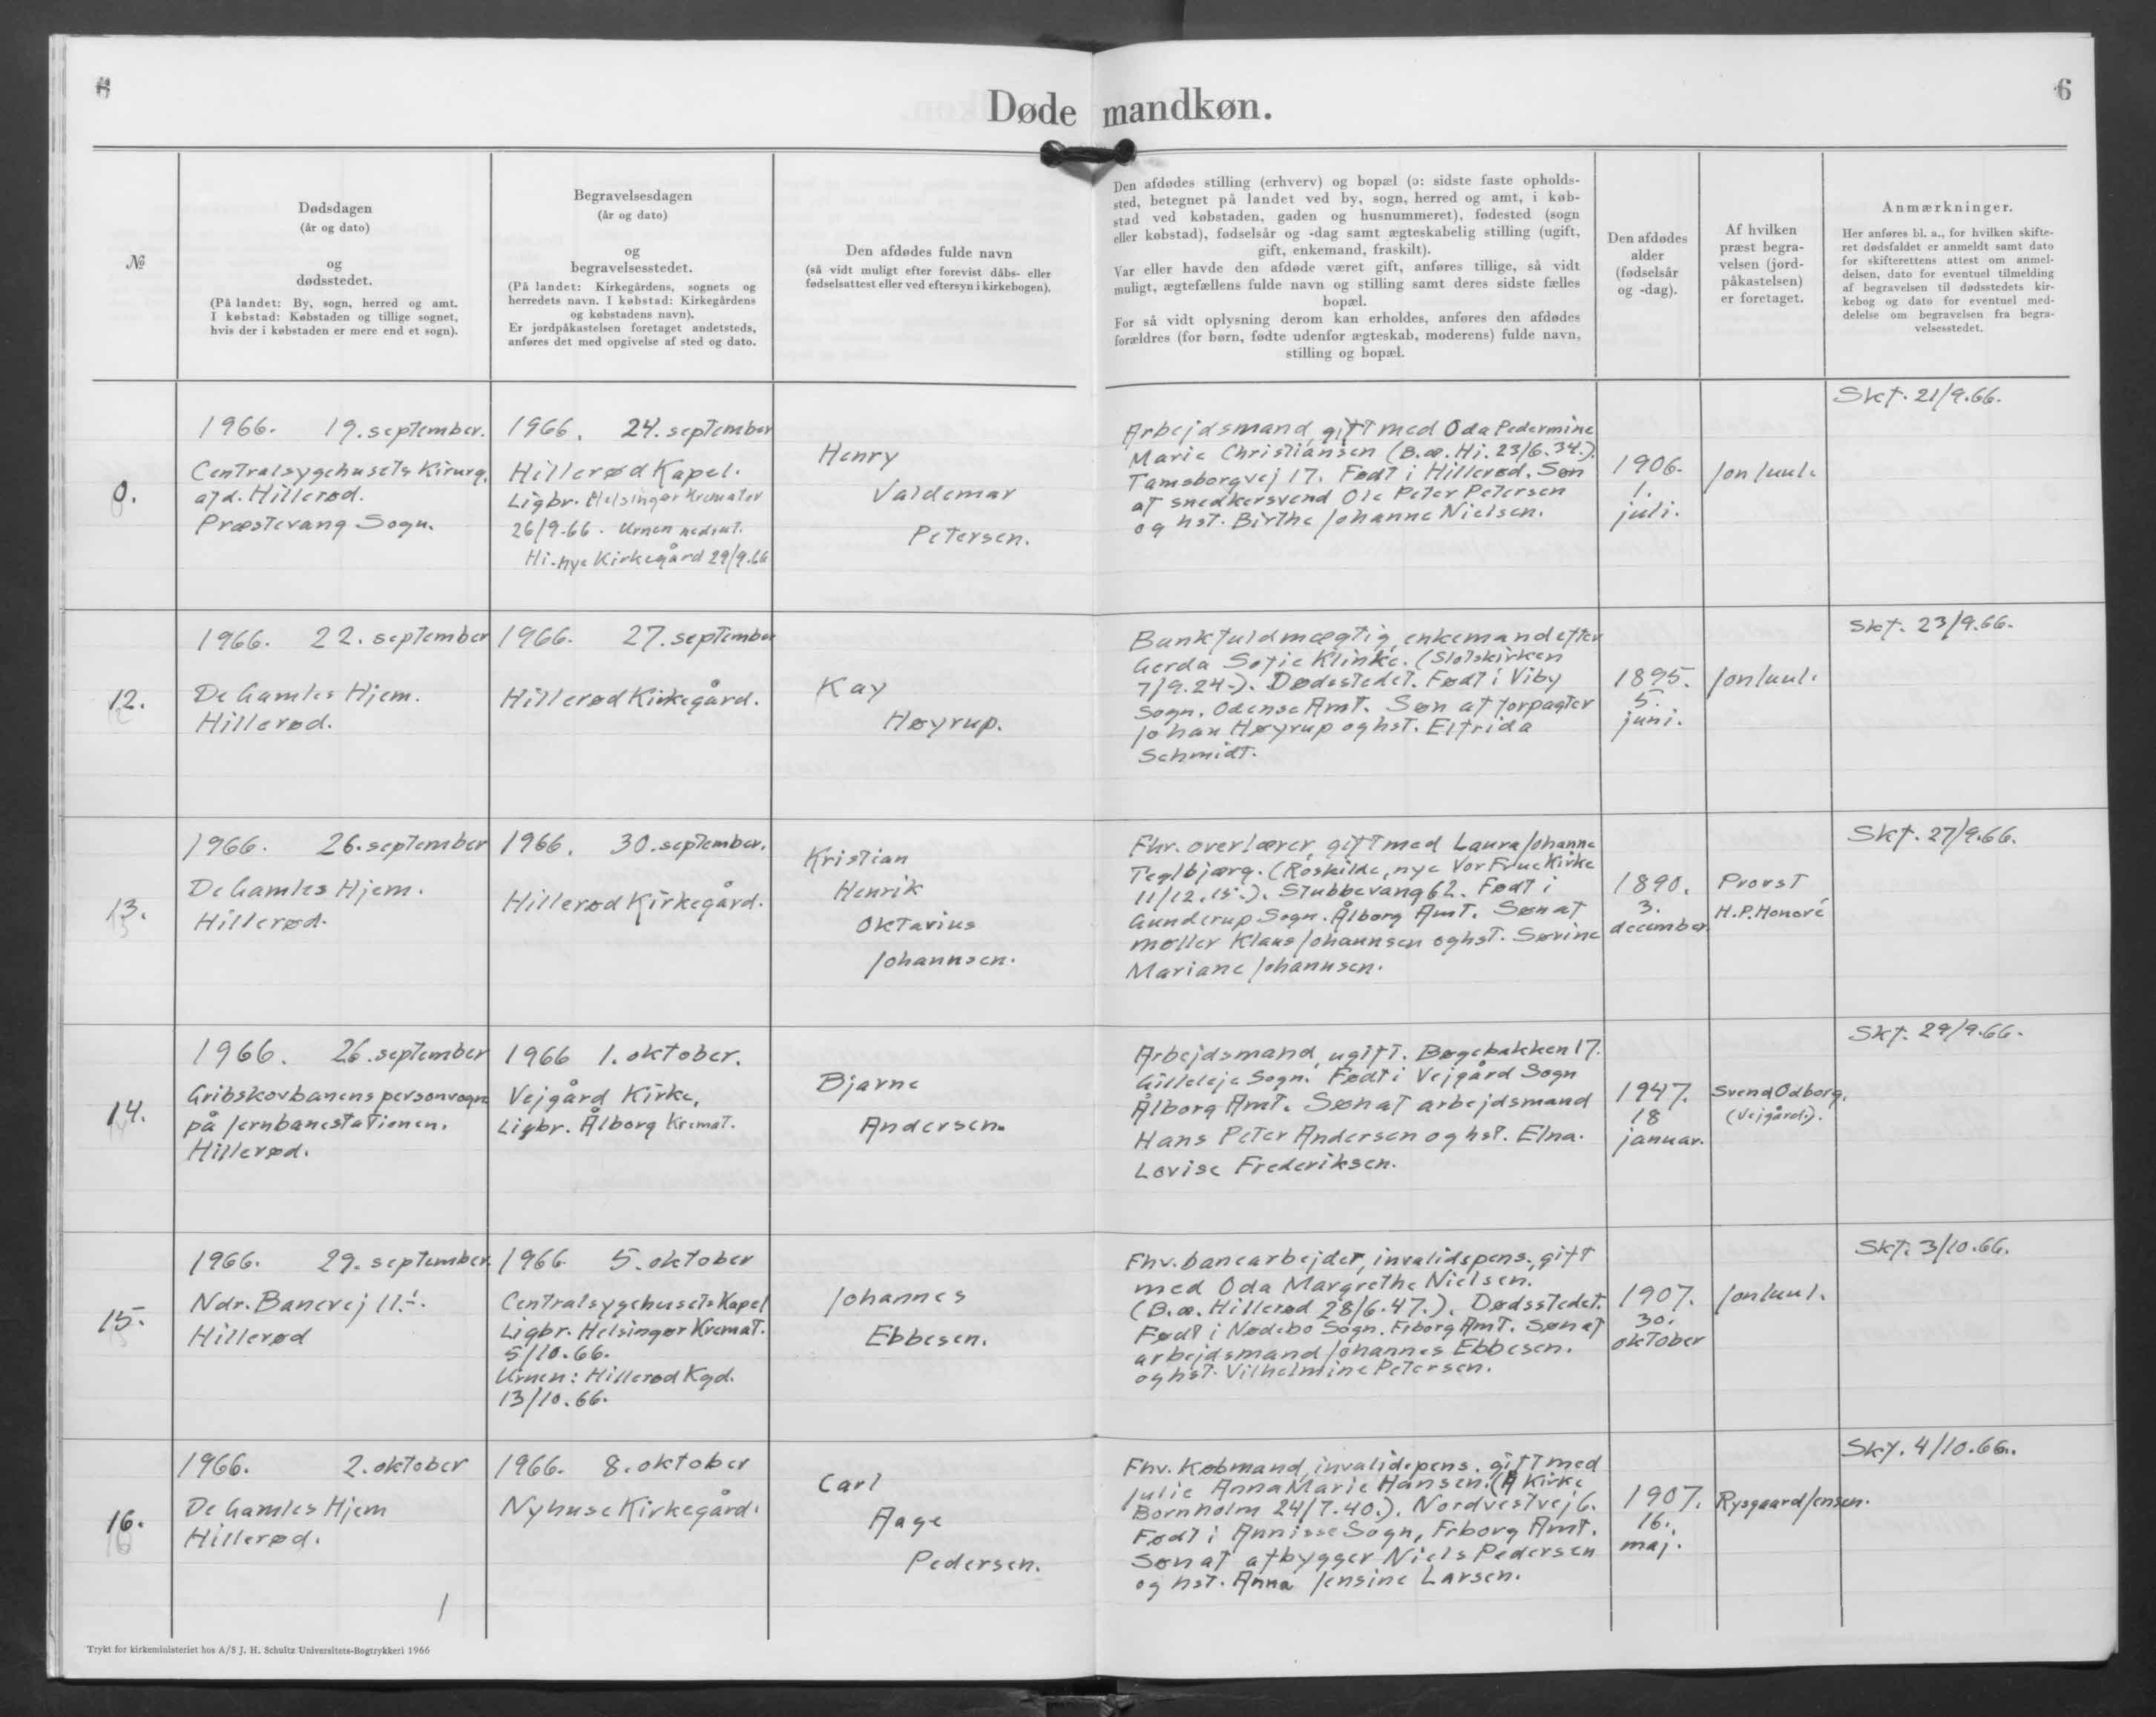 6
Døde mandkøn.
6
№
Dødsdagen
(år og dato)
og
dødsstedet.
(På landet: By, sogn, herred og amt.
I købstad: Købstaden og tillige sognet,
hvis der i købstaden er mere end et sogn).
Begravelsesdagen
(år og dato)
og
begravelsesstedet.
(På landet: Kirkegårdens, sognets og
herredets navn. I købstad: Kirkegårdens
og købstadens navn).
Er jordpåkastelsen foretaget andetsteds,
anføres det med opgivelse af sted og dato.
Den afdødes fulde navn
(så vidt muligt efter forevist dåbs- eller
fødselsattest eller ved eftersyn i kirkebogen).
Den afdødes stilling (erhverv) og bopæl (ɔ: sidste faste opholds-
sted, betegnet på landet ved by, sogn, herred og amt, i køb-
stad ved købstaden, gaden og husnummeret), fødested (sogn
eller købstad), fødselsår og -dag samt ægteskabelig stilling (ugift,
gift, enkemand, fraskilt).
Var eller havde den afdøde været gift, anføres tillige, så vidt
muligt, ægtefællens fulde navn og stilling samt deres sidste fælles
bopæl.
For så vidt oplysning derom kan erholdes, anføres den afdødes
forældres (for børn, fødte udenfor ægteskab, moderens) fulde navn,
stilling og bopæl.
Den afdødes
alder
(fødselsår
og -dag).
Af hvilken
præst begra-
velsen (jord-
påkastelsen)
er foretaget.
Anmærkninger.
Her anføres bl. a., for hvilken skifte-
ret dødsfaldet er anmeldt samt dato
for skifterettens attest om anmel-
delsen, dato for eventuel tilmelding
af begravelsen til dødsstedets kir-
kebog og dato for eventuel med-
delelse om begravelsen fra begra-
velsesstedet.
0.
1966. 19. september.
Centralsygehusets Kirurg.
afd. Hillerød.
Præstevang Sogn.
1966. 24. september
Hillerød Kapel.
Ligbr. Helsingør Kremator
26/9-66. Urnen nedsat.
Hi. nye Kirkegård 29/9.66
Henry
Valdemar
Petersen.
Arbejdsmand, gift med Oda Pedermine
Marie Christiansen (B.æ. Hi. 23/6.34.).
Tamsborgvej 17. Født i Hillerød. Søn
af snedkersvend Ole Peter Petersen
og hst. Birthe Johanne Nielsen.
1906.
1.
juli.
Jon Juul.
Skf. 21/9.66.
12.
1966. 22. september
De Gamles Hjem.
Hillerød.
1966. 27. september
Hillerød Kirkegård.
Kay
Høyrup.
Bankfuldmægtig, enkemand efter
Gerda Sofie Klinke. (Slotskirken
7/9.24-). Dødsstedet. Født i Viby
Sogn, Odense Amt. Søn af forpagter
Johan Høyrup og hst. Elfrida
Schmidt.
1895.
5.
juni.
Jon Juul.
Skf. 23/9.66.
13.
1966. 26. september
De Gamles Hjem.
Hillerød.
1966. 30. september.
Hillerød Kirkegård.
Kristian
Henrik
Oktavius
Johannsen.
Fhv. overlærer, gift med Laura Johanne
Teglbjærg. (Roskilde, nye Vor Frue Kirke
11/12.15.). Stubbevang 62. Født i
Gunderup Sogn. Ålborg Amt. Søn af
møller Klaus Johannsen og hst. Sørine
Mariane Johannsen.
1890.
3.
december
Provst
H.P. Honoré
Skf. 27/9.66.
14.
1966. 26. september
Gribskovbanens personvogn
på Jernbanestationen.
Hillerød.
1966 1. oktober.
Vejgård Kirke,
Ligbr. Ålborg Kremat.
Bjarne
Andersen.
Arbejdsmand, ugift. Bøgebakken 17.
Gilleleje Sogn. Født i Vejgård Sogn
Ålborg Amt. Søn af arbejdsmand
Hans Peter Andersen og hst. Elna.
Lovise Frederiksen.
1947.
18
januar.
Svend Odborg,
(Vejgård).
Skf. 29/9.66.
15.
1966. 29. september.
Ndr. Banevej 11.
Hillerød
1966 5. oktober
Centralsygehusets Kapel
Ligbr. Helsingør Kremat.
5/10.66.
Urnen: Hillerød Kgd.
13/10.66.
Johannes
Ebbesen.
Fhv. banearbejder, invalidepens., gift
med Oda Margrethe Nielsen.
(B.æ. Hillerød 28/6.47.). Dødsstedet.
Født i Nødebo Sogn. Frborg Amt. Søn af
arbejdsmand Johannes Ebbesen.
og hst. Vilhelmine Petersen.
1907.
30.
oktober
Jon Juul.
Skf. 3/10.66.
16.
1966. 2. oktober
De Gamles Hjem
Hillerød.
1966. 8. oktober
Nyhuse Kirkegård.
Carl
Aage
Pedersen.
Fhv. Købmand, invalidepens. gift med
Julie Anna Marie Hansen. (Å Kirke
Bornholm 24/7.40.). Nordvestvej 6.
Født i Annisse Sogn, Frborg Amt.
Søn af afbygger Niels Pedersen
og hst. Anna Jensine Larsen.
1907.
16.
maj.
Rysgaard Jensen.
Skf. 4/10.66.
Trykt for kirkeministeriet hos A/S J. H. Schultz Universitets-Bogtrykkeri 1966